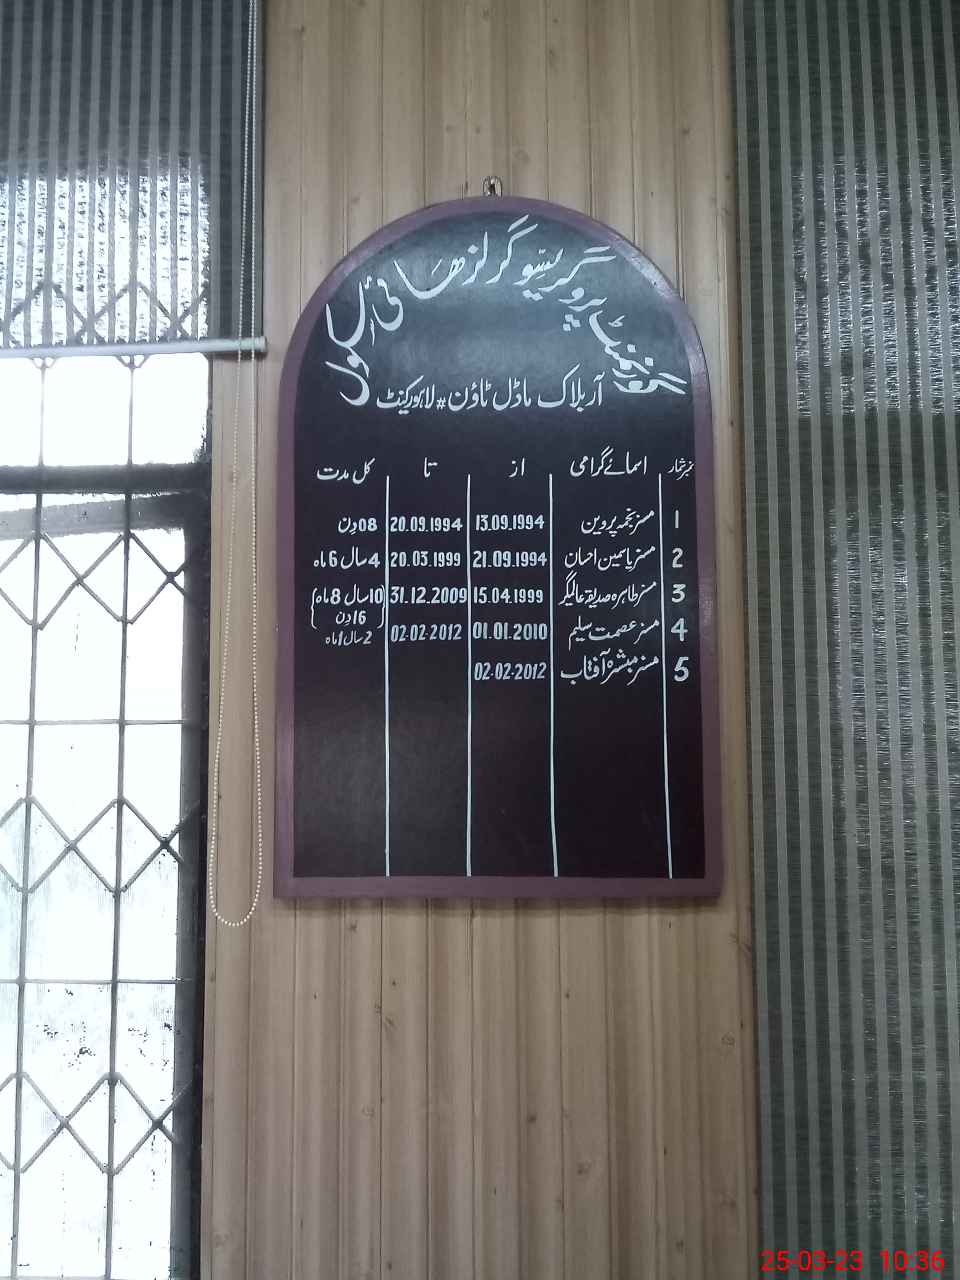 گورنمنٹ پروگریسیو گرلز ھائی سکول
آر بلاک ماڈل ٹاؤن # لاہور کینٹ
نمبر شمار اسمائے گرامی از تا کل مدت
1 مسز نجمہ پروین 13.09.1994 20.09.1994 08 دِن
2 مسز یاسمین احسان 21.09.1994 20.03.1999 4 سال 6 ماہ
3 مسز طاہرہ صدیقہ عالمگیر 15.04.1999 31.12.2009 (10 سال 8 ماہ
16 دِن)
4 مسز عصمت سلیم 01.01.2010 02-02-2012 2 سال 1 ماہ
5 مسز مبشرہ آفتاب 02-02-2012
25-03-23 10:36